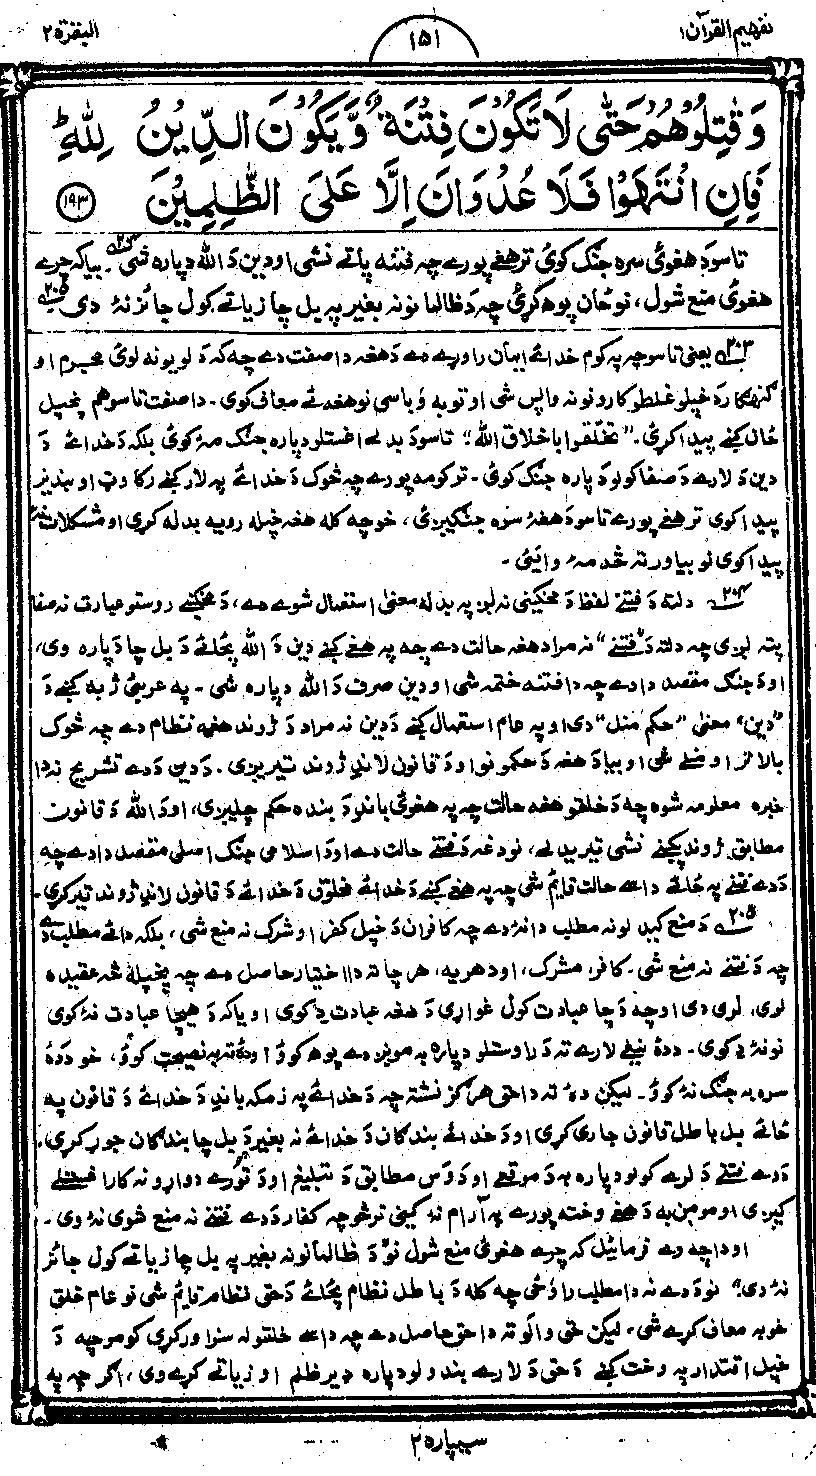 تفهيم القرآن ١
١٥١
البقرة ٢
وَقٰتِلُوْهُمْ حَتّٰى لَا تَكُوْنَ فِتْنَةٌ وَّيَكُوْنَ الدِّيْنُ لِلّٰهِ ؕ
فَاِنِ انْتَهَوْا فَلَا عُدْوَانَ اِلَّا عَلَى الظّٰلِمِيْنَ ﴿١٩٣﴾
تاسو دَ هغوئ سره جنګ کوئ تر هغې پورې چه فتنه پاتې نشی او دین دَ الله دپاره شی ٢٠٤ـ بیا که چرې
هغوئ منع شول، نو ځان پوه کړئ چه دَ ظالمانونه بغیر په بل چا زیاتې کول جائز نۀ دی ٢٠٥
٢٠٣ یعنی تاسو چه په کوم خدائے ایمان راوړے دے دَ هغه دا صفت دے چه که دَ لویو نه لوئ مجرم او
ګنهګار دَ خپلو غلطو کارونو نه واپس شی او توبه وُباسی نو هغه ئے معاف کوی۔ دا صفت تاسو هم پخپل
ځان کښې پیدا کړئ۔ "تخلّقوا باخلاق الله"؛ تاسو دَ بدلے اخستلو دپاره جنګ مۀ کوئ بلکه دَ خدائے دَ
دین دَ لارے دَ صفا کولو دپاره جنګ کوئ۔ تر کومه پورے چه څوک دَ خدائے په لار کښے رکاوټ او بندیز
پیدا کوی تر هغے پورے تاسو دَ هغۀ سره جنګیږئ، خو چه کله هغه خپله رویه بدله کړی او مشکلات نۀ
پیدا کوی نو بیا ورته څه مۀ وایئ۔
٢٠٤ دلته دَ فتنے لفظ دَ مخکینی نه لږ په بدله معنیٰ استعمال شوے دے، دَ مخکښے روستو عبارت نه صفا
پته لږی چه دلته دَ "فتنے" نه مراد هغه حالت دے چه په هغے کښے دین دَ الله پځائے دَ بل چا دپاره وی،
او دَ جنګ مقصد دا دے چه دا فتنه ختمه شی او دین صرف دَ الله دپاره شی۔ په عربئ ژبه کښے دَ
"دین" معنیٰ "حکم منل" دی او په عام استعمال کښے دَ دین نه مراد دَ ژوند هغه نظام دے چه څوک
بالاتر او منلے شی او بیا دَ هغه دَ حکمونو او دَ قانون لاندِ ژوند تیریږی۔ دَ دین دَ دے تشریح نه دا
خبره معلومه شوه چه دَ خلقو هغه حالت چه په هغوئ باندِ دَ بنده حکم چلیږی، او دَ الله دَ قانون
مطابق ژوند پکښے نشی تیریدلے، نو دغه دَ فتنے حالت دے او دَ اسلامی جنګ اصلی مقصد دا دے چه
دَ دے فتنے په ځائے داسے حالت قایم شی چه په هغے کښے دَ خدائے مخلوق دَ خدائے دَ قانون لاندِ ژوند تیر کړی۔
٢٠٥ دَ منع کیدلو نه مطلب دا نۀ دے چه کافران دَ خپل کفر او شرک نه منع شی، بلکه دائے مطلب دے
چه دَ فتنے نه منع شی۔ کافر، مشرک، او دهریه، هر چا ته دا اختیار حاصل دے چه پخپله څه عقیده
لری، لری دی او چه دَ چا عبادت کول غواړی دَ هغه عبادت دِ کوی او یا که دَ هیچا عبادت نۀ کوی
نو نۀ دِ کوی۔ دۀ نیغے لارے ته دَ راوستلو دپاره به مونږ دے پوهه کوؤ او دۀ ته به نصیحت کوؤ، خو دَ دۀ
سره به جنګ نۀ کوؤ۔ لیکن دۀ ته دا حق هرګز نشته چه دَ خدائے په زمکه باندِ دَ خدائے دَ قانون په
ځائے بل باطل قانون جاری کړی او دَ خدائے بندګان دَ خدائے نه بغیر دَ بل چا بندګان جوړ کړی.
دَ دے فتنے دَ لرے کولو دپاره به دَ موقعے او دَ وَس مطابق دَ تبلیغ او دَ تُورے دواړو نه کار اخستلے
کیږی او مومن به دَ هغے وخته پورے په آرام نۀ کینی ترڅو چه کفار دَ دے فتنے نه منع شوی نۀ وی۔
او دا چه ئے فرمائیل که چرے هغوئ منع شول نو "دَ ظالمانو نه بغیر په بل چا زیاتے کول جائز
نۀ دی" نو دَ دے نه دا مطلب راؤځی چه کله دَ باطل نظام پځائے دَ حق نظام قایم شی نو عام خلق
خو به معاف کړے شی۔ لیکن حق والو ته دا حق حاصل دے چه داسے خلقو له سزا ورکړی کومو چه دَ
خپل اقتدار په وخت کښے دَ حق دَ لارے بندولو دپاره ډیر ظلم او زیاتے کړے وی، اګر چه په
سیپاره ٢